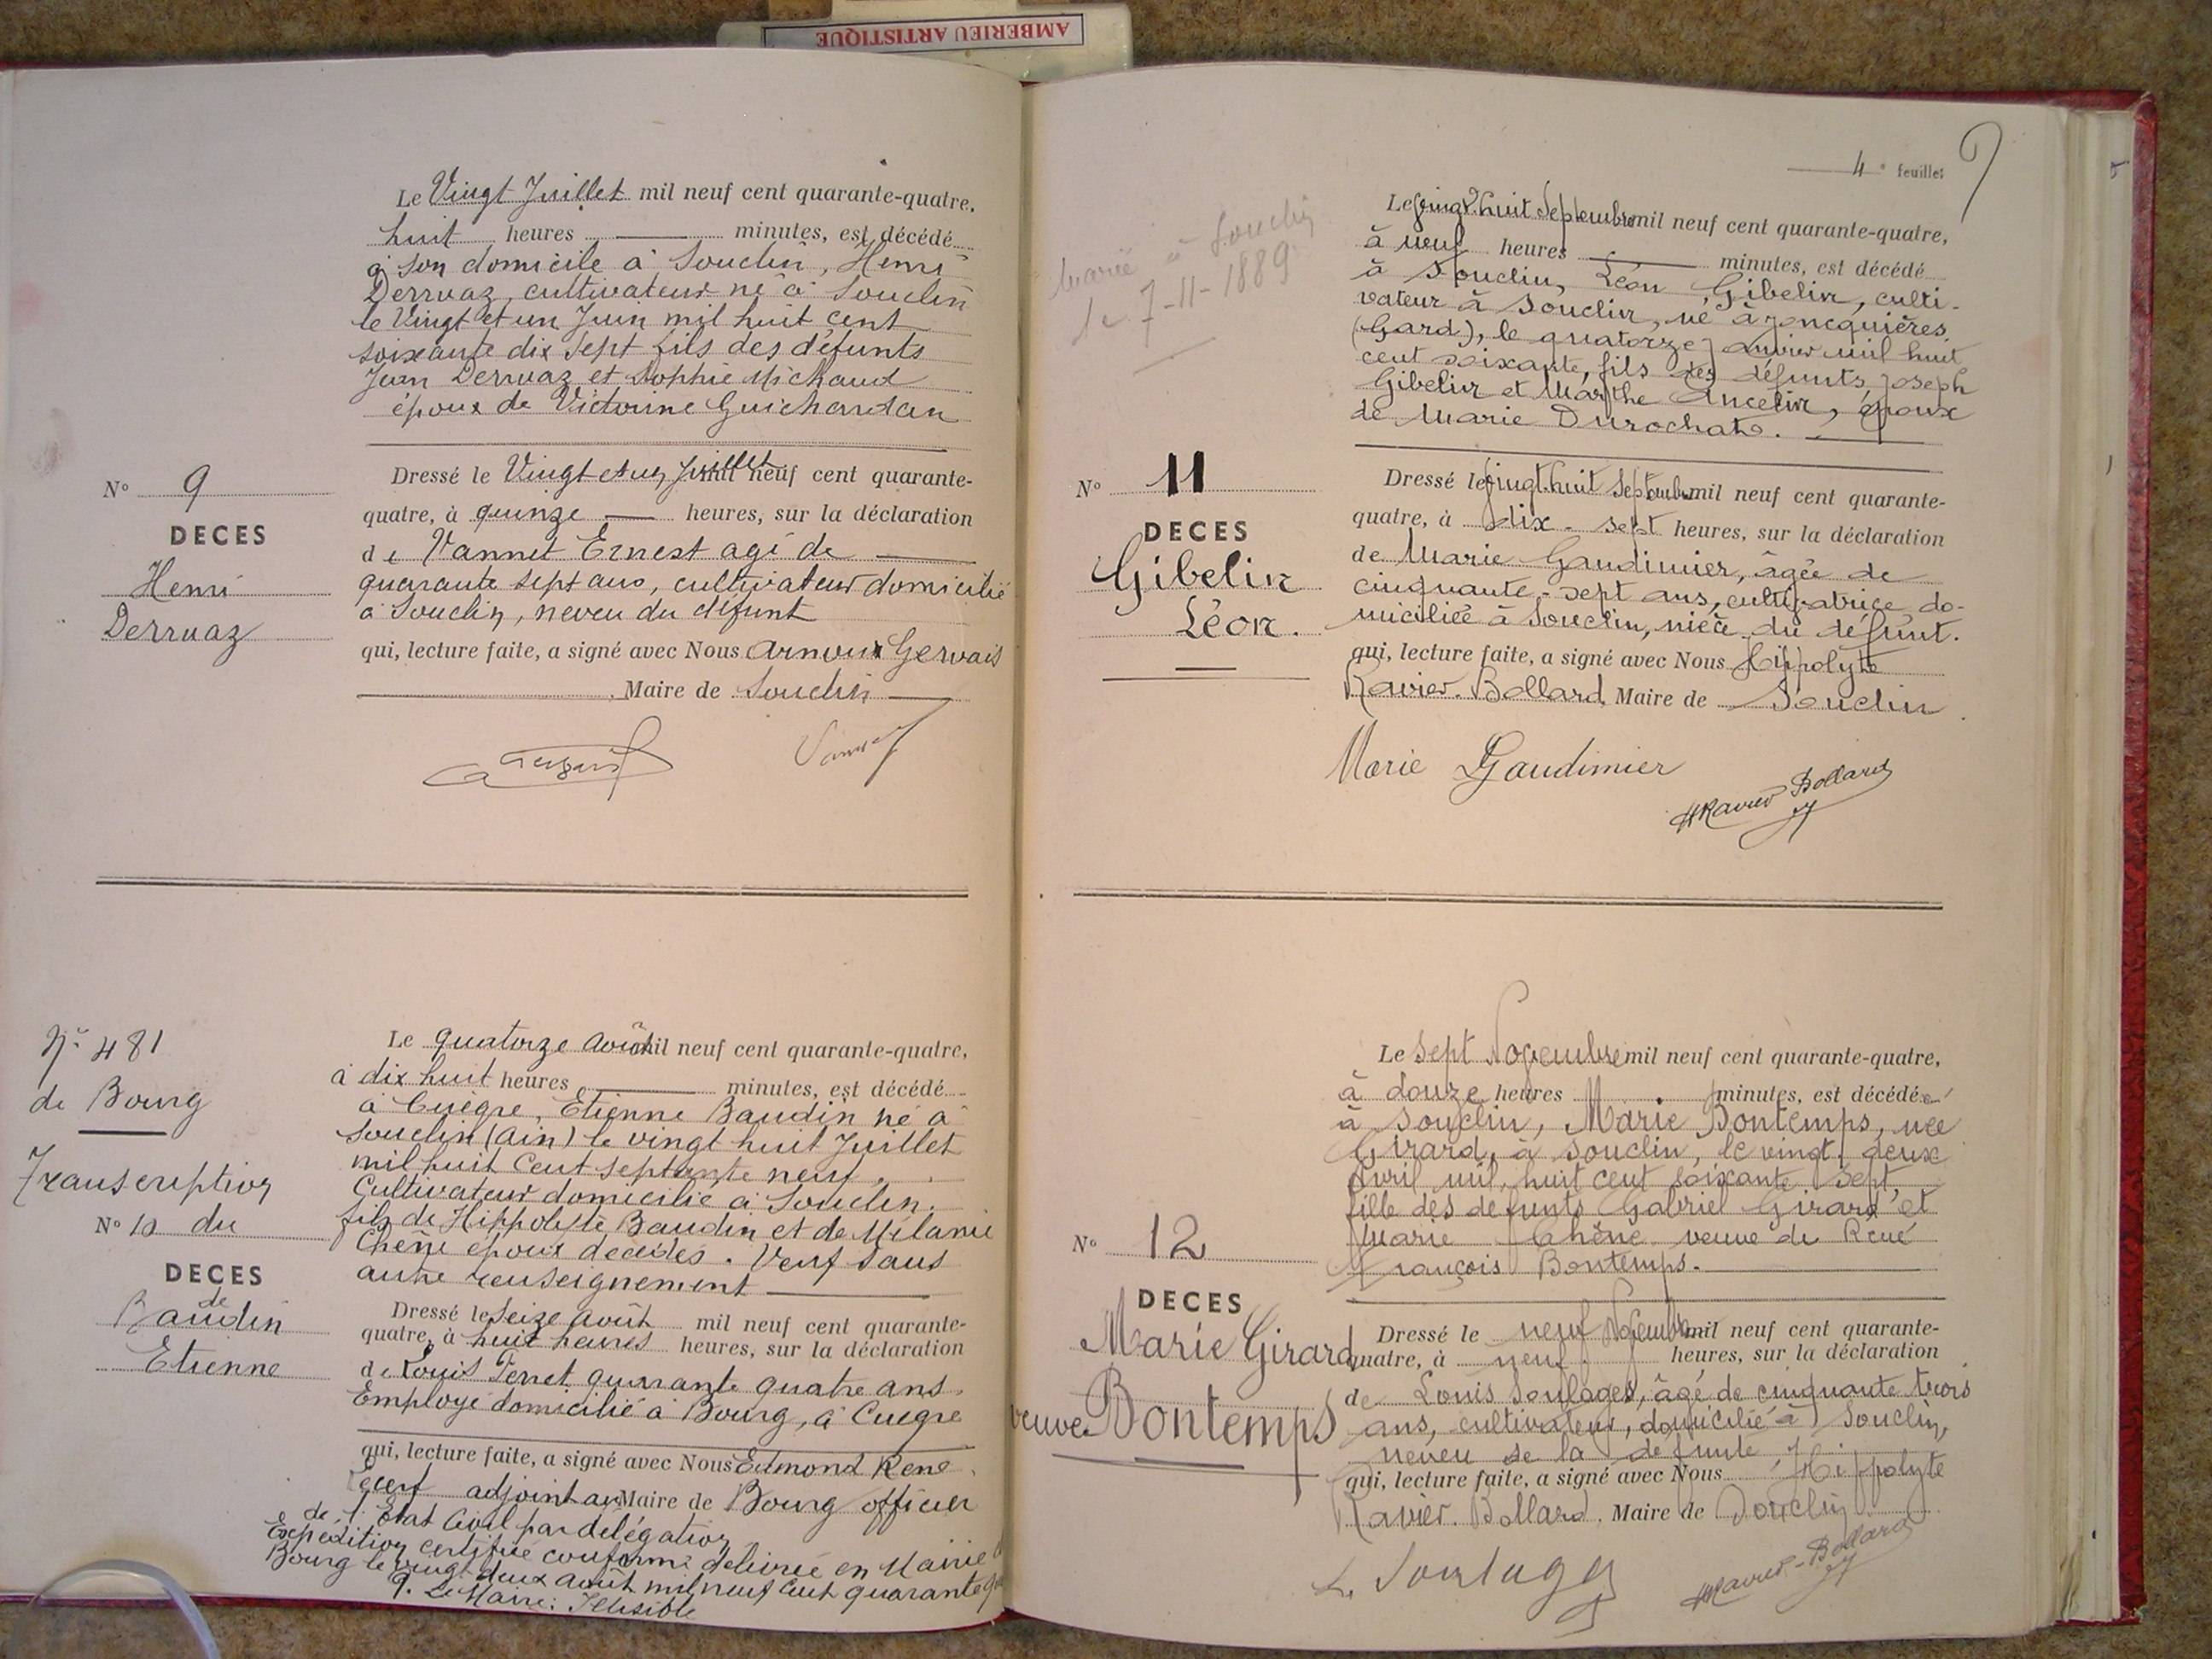 AMBERIEU ARTISTIQUE
Le Vingt Juillet mil neuf cent quarante-quatre,
huit heures — minutes, est décédé
à son domicile à Souclin, Henri
Derruaz, cultivateur né à Souclin
le Vingt et un Juin mil huit cent
soixante dix sept fils des défunts
Jean Derruaz et Sophie Michaud
époux de Victorine Guichardan
N° 9
DECES
Henri
Derruaz
Dressé le Vingt et un Juillet mil neuf cent quarante-
quatre, à quinze — heures, sur la déclaration
de Vannet Ernest agé de —
quarante sept ans, cultivateur domicilié
à Souclin, neveu du défunt
qui, lecture faite, a signé avec Nous Arnoux Gervais
Maire de Souclin
N° 481
de Bourg
Transcription
N° 10 du
DECES
de
Baudin
Etienne
Le quatorze août mil neuf cent quarante-quatre,
à dix huit heures — minutes, est décédé
à Cuègre, Etienne Baudin né à
Souclin (Ain) le vingt huit Juillet
mil huit cent septante neuf.
Cultivateur domicilié à Souclin.
fils de Hippolyte Baudin et de Mélanie
Chêne époux décédés. Veuf sans
autre renseignement —
Dressé le Seize août mil neuf cent quarante-
quatre, à huit heures heures, sur la déclaration
de Louis Terret quarante quatre ans.
Employé domicilié à Bourg, à Cuègre
qui, lecture faite, a signé avec Nous Edmond René
adjoint au Maire de Bourg officier
de l'Etat Civil par délégation
Expédition certifiée conforme délivrée en Mairie
Bourg le vingt deux août mil neuf cent quarante
Le Maire: Illisible
4e feuillet
Marié à Souclin
le 7-11-1889
Le vingt-huit Septembre mil neuf cent quarante-quatre,
à neuf heures — minutes, est décédé
à Souclin, Léon Gibelin, culti-
vateur à Souclin, né à Joncquières
(Gard), le quatorze janvier mil huit
cent soixante, fils des défunts Joseph
Gibelin et Marthe Ancelin, époux
de Marie Durochat. —
N° 11
DECES
Gibelin
Léon.
Dressé le vingt-huit Septembre mil neuf cent quarante-
quatre, à dix-sept heures, sur la déclaration
de Marie Gaudimier, âgée de
cinquante-sept ans, cultivatrice do-
miciliée à Souclin, nièce du défunt.
qui, lecture faite, a signé avec Nous Hippolyte
Ravier-Bollard, Maire de Souclin
Marie Gaudimier
HRavier Bollard
Le sept Novembre mil neuf cent quarante-quatre,
à douze heures minutes, est décédée
à Souclin, Marie Bontemps, née
Girard, à Souclin, le vingt-deux
Avril mil huit cent soixante sept,
fille des défunts Gabriel Girard et
Marie Chêne veuve de René
François Bontemps.
N° 12
DECES
Marie Girard
veuve Bontemps
Dressé le neuf Novembre mil neuf cent quarante-
quatre, à neuf heures, sur la déclaration
de Louis Soulages, âgé de cinquante trois
ans, cultivateur, domicilié à Souclin,
neveu de la défunte,
qui, lecture faite, a signé avec Nous Hippolyte
Ravier-Bollard. Maire de Souclin
L. Soulages
HRavier-Bollard